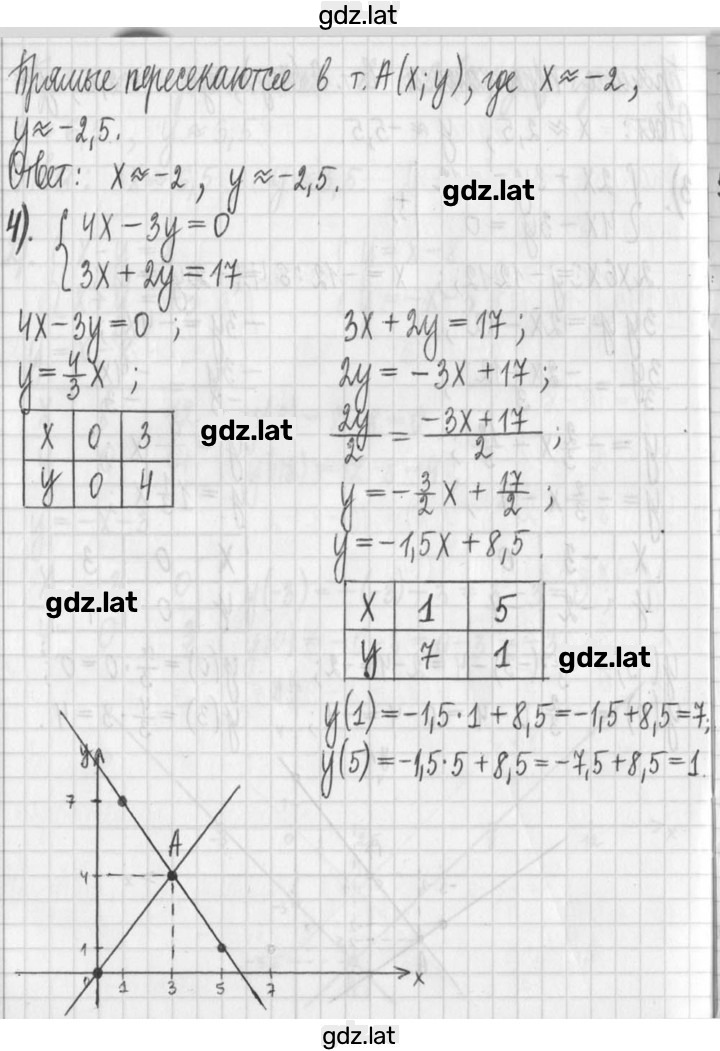 gdz.lat
Прямые пересекаются в т. A(x; y), где x ≈ -2,
y ≈ -2,5.
Ответ: x ≈ -2, y ≈ -2,5.
gdz.lat
4). { 4x - 3y = 0
3x + 2y = 17
4x - 3y = 0 ;
y = 4/3 x ;
x 0 3
y 0 4
gdz.lat
3x + 2y = 17 ;
2y = -3x + 17 ;
2y/2 = (-3x + 17)/2 ;
y = -3/2 x + 17/2 ;
y = -1,5x + 8,5.
gdz.lat
x 1 5
y 7 1
gdz.lat
y(1) = -1,5·1 + 8,5 = -1,5 + 8,5 = 7;
y(5) = -1,5·5 + 8,5 = -7,5 + 8,5 = 1.
y
7
A
4
1
0 1 3 5 7 x
gdz.lat